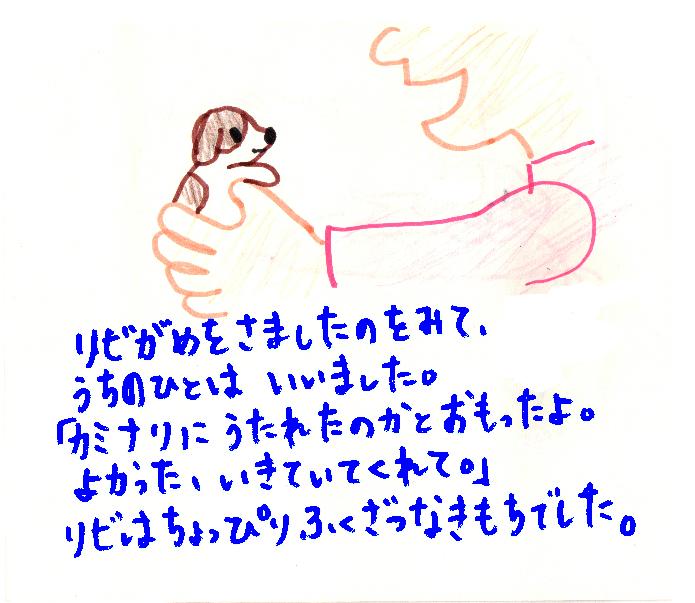 リビがめをさましたのをみて、
うちのひとは いいました。
「カミナリに うたれたのかとおもったよ。
よかった、いきていてくれて。」
リビはちょっぴり、ふくざつなきもちでした。